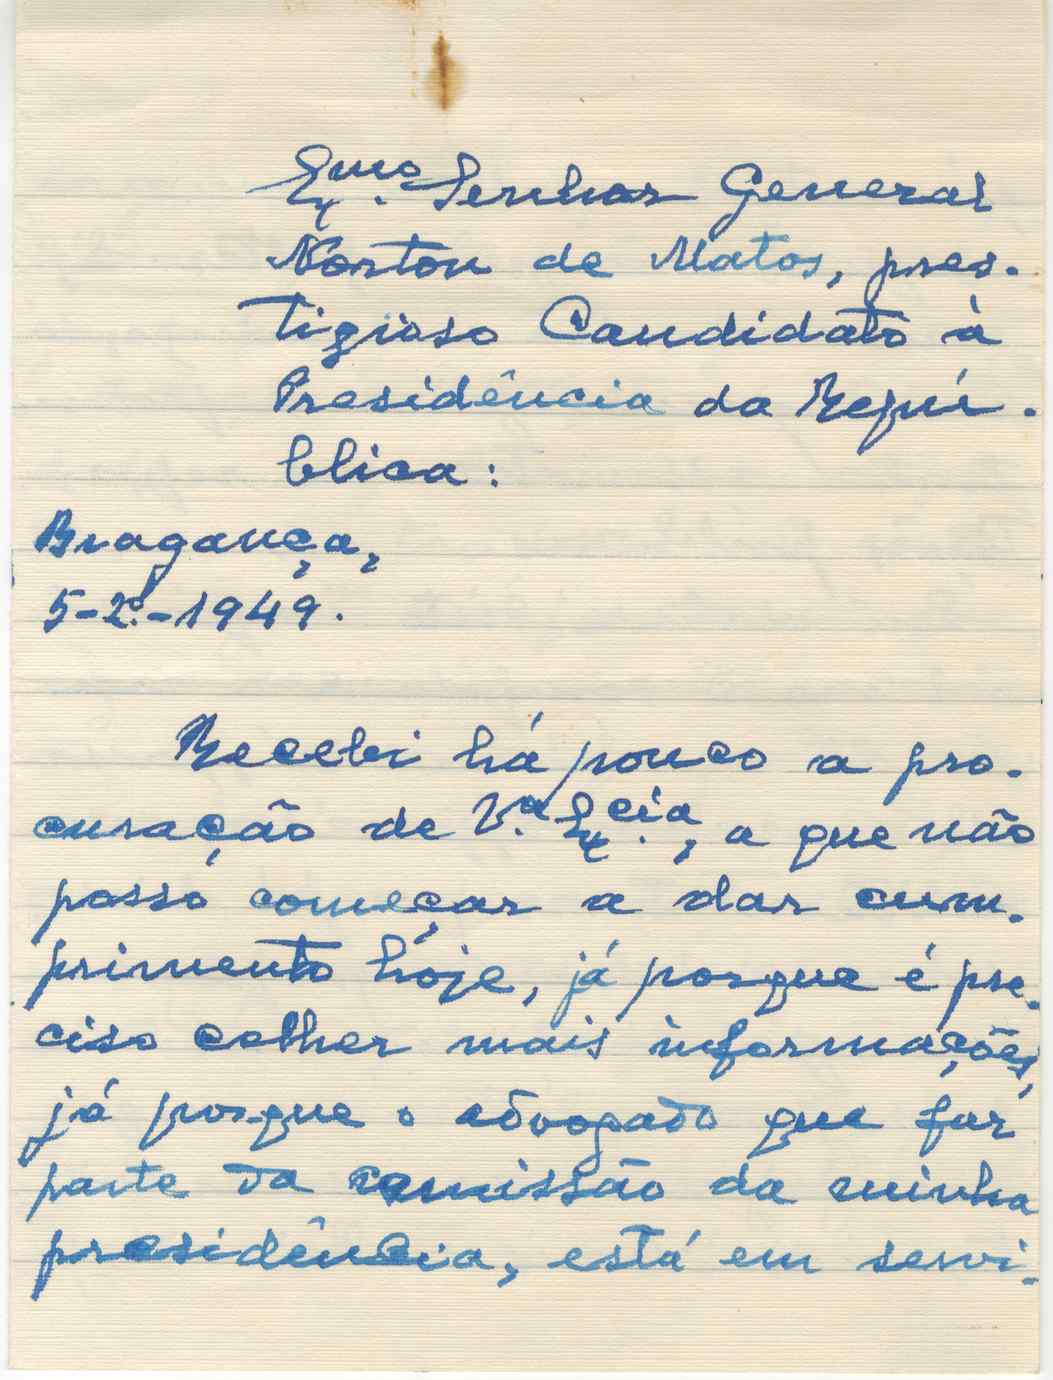 Exmo. Senhor General
Norton de Matos, pres-
tigioso Candidato à
Presidência da Repú-
blica:
Bragança,
5-2º-1949.
Recebi há pouco a pro-
curação de V.ª Excia., a que não
posso começar a dar cum-
primento hoje, já porque é pre-
ciso colher mais informações,
já porque o advogado que faz
parte da comissão da minha
presidência, está em servi-